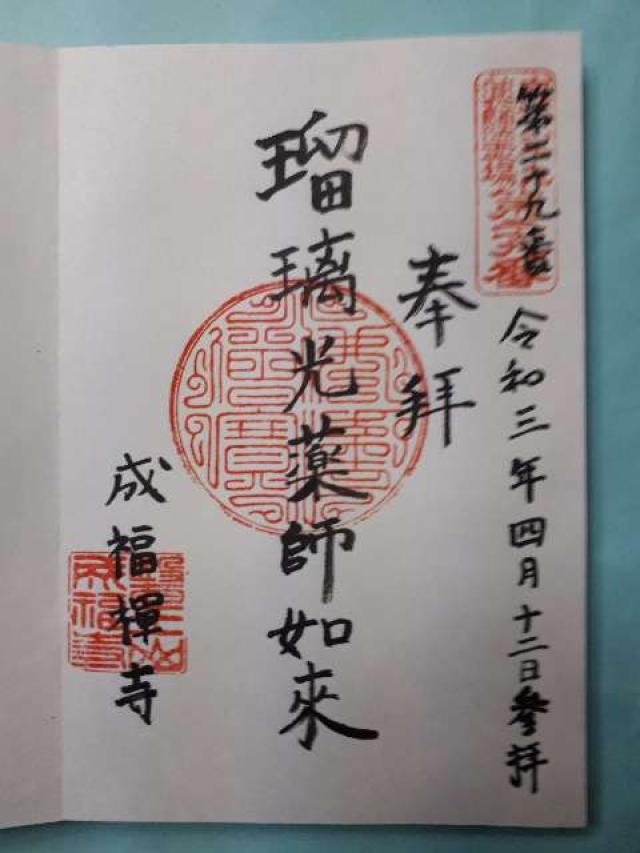 第二十九番
令和三年四月十二日參拝
奉拝
瑠璃光薬師如來
成福禅寺